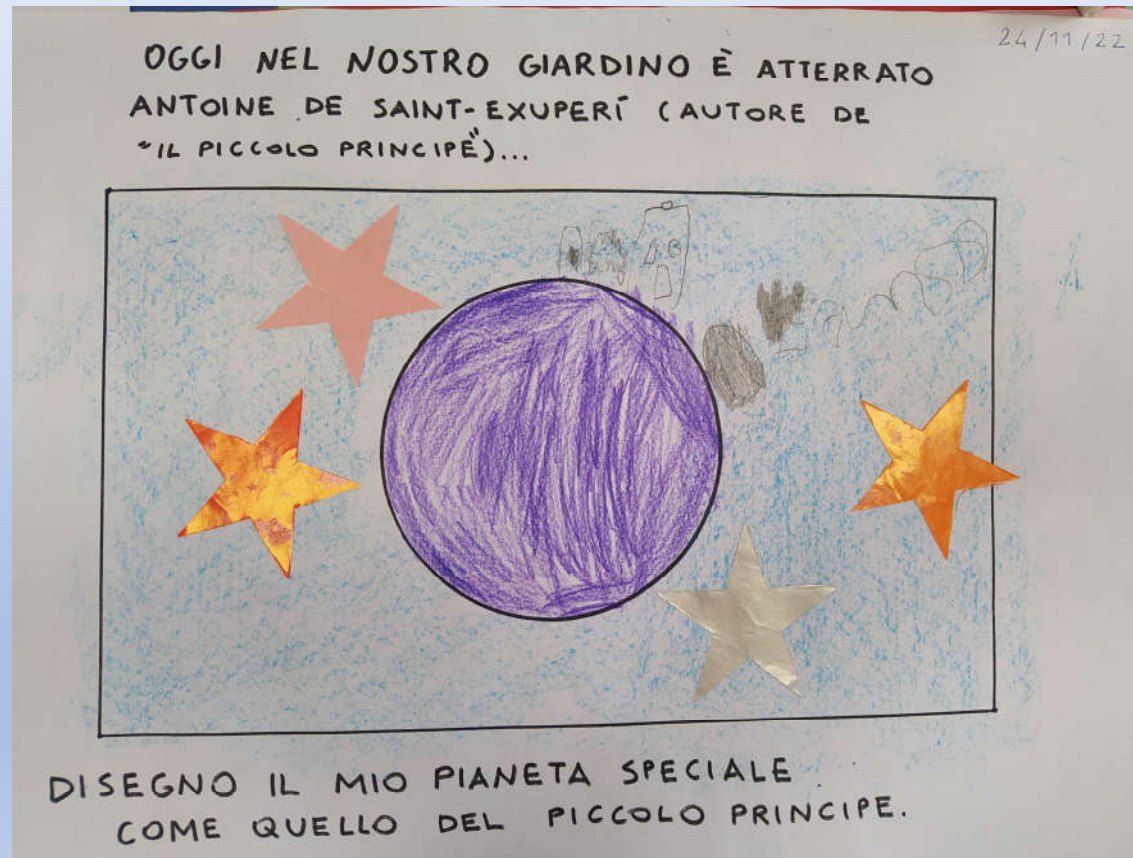 24/11/22
OGGI NEL NOSTRO GIARDINO È ATTERRATO
ANTOINE DE SAINT-EXUPERÍ (AUTORE DE
"IL PICCOLO PRINCIPE")...
DISEGNO IL MIO PIANETA SPECIALE
COME QUELLO DEL PICCOLO PRINCIPE.